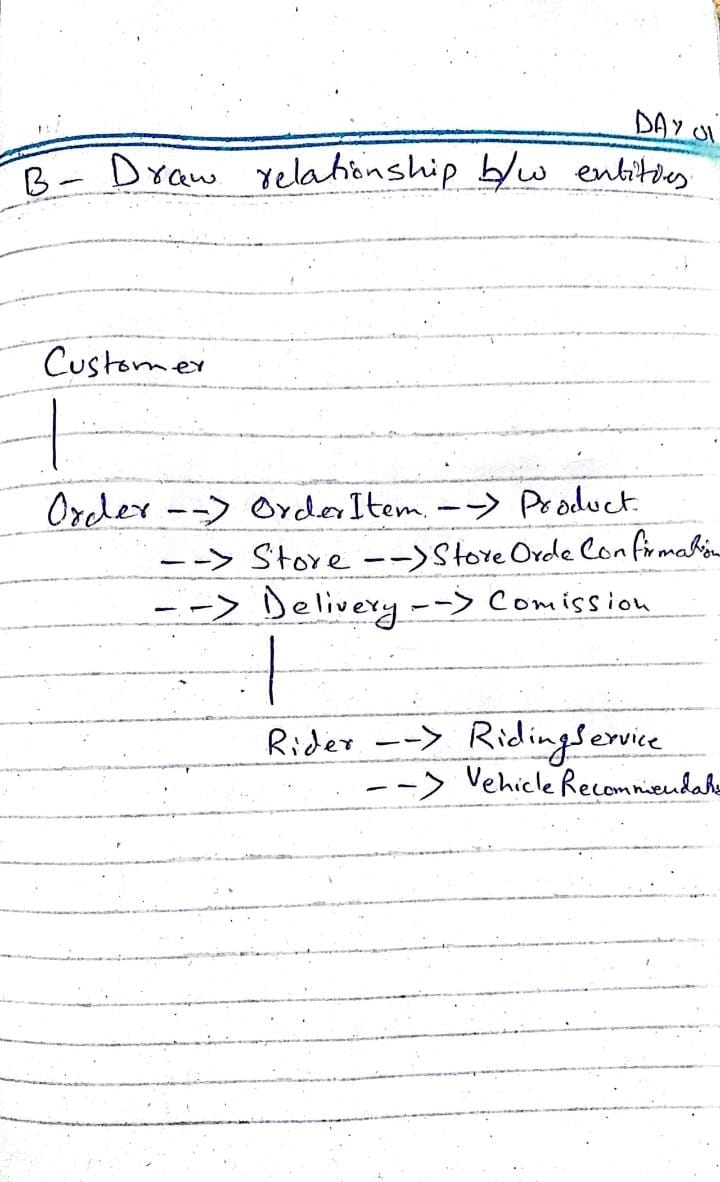 DAY 01
B - Draw relationship b/w entities
Customer
Order --> OrderItem. --> Product.
--> Store --> Store Orde Confirmation
--> Delivery --> Comission
Rider --> RidingService
--> Vehicle